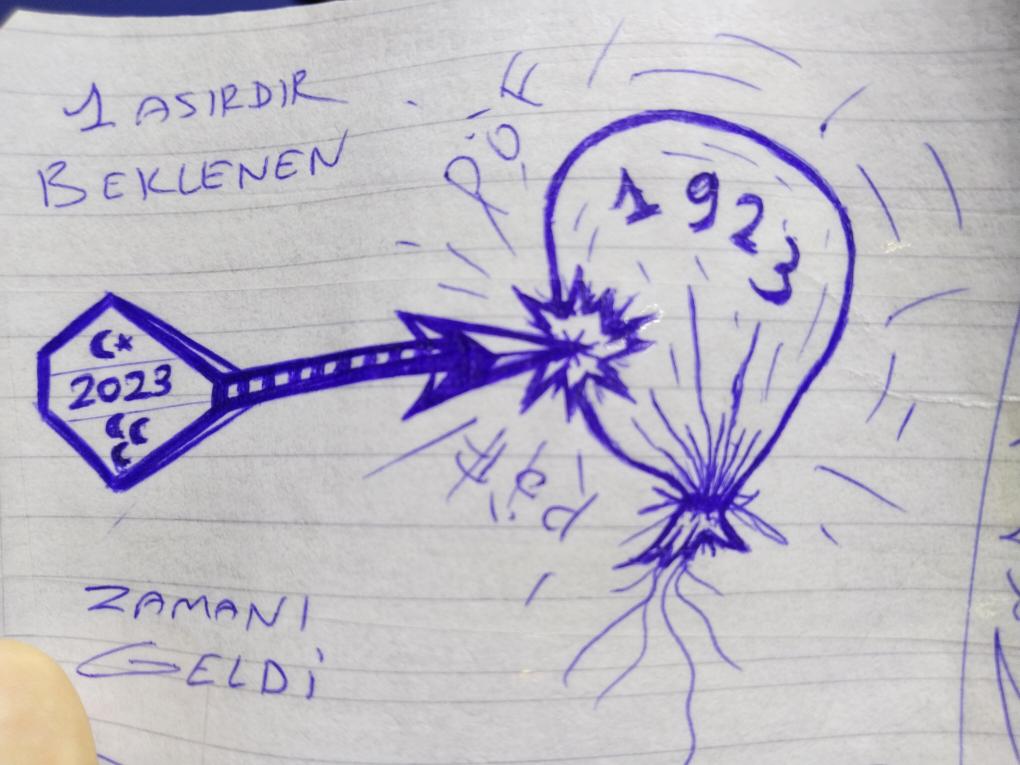 1 ASIRDIR
BEKLENEN
PÖF
1923
2023
PÖF
ZAMANI
GELDİ